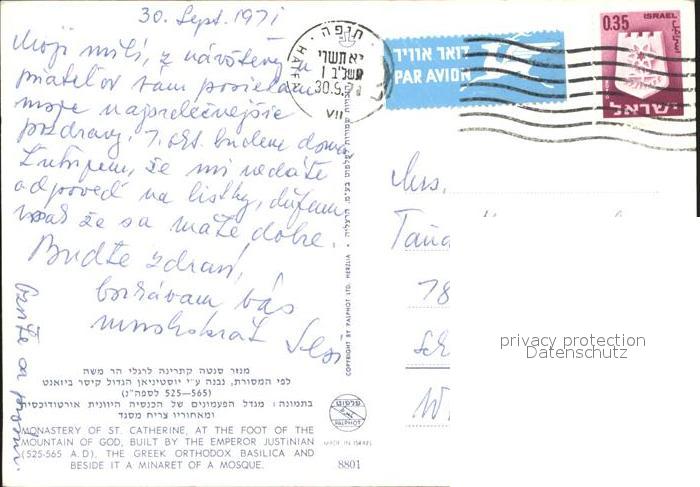 30. Sept. 1971
Moji milí, z návštevy
priateľov vám posielam
moje najsrdečnejšie
pozdravy, 7. okt. budeme doma
že mi nedáte
odpoveď na lístky, dúfam
však že sa máte dobre.
Buďte zdraví,
bozkávam vás
mnohokrát
חיפה
יא תשרי
תשל"ב
HAIFA
30.9.71
VII
דואר אוויר
PAR AVION
0.35 ISRAEL
ישראל
Mrs.
78
COPYRIGHT BY PALPHOT LTD. HERZLIA
privacy protection
Datenschutz
מנזר סנטה קתרינה לרגלי הר משה
לפי המסורת, נבנה ע"י יוסטיניאן הגדול קיסר ביזאנט
(525—565 לספה"נ)
בתמונה: מגדל הפעמונים של הכנסיה היוונית אורטודוכסית
ומאחוריו צריח מסגד
MONASTERY OF ST. CATHERINE, AT THE FOOT OF THE
MOUNTAIN OF GOD, BUILT BY THE EMPEROR JUSTINIAN
(525-565 A.D). THE GREEK ORTHODOX BASILICA AND
BESIDE IT A MINARET OF A MOSQUE.
PALPHOT
MADE IN ISRAEL
8801